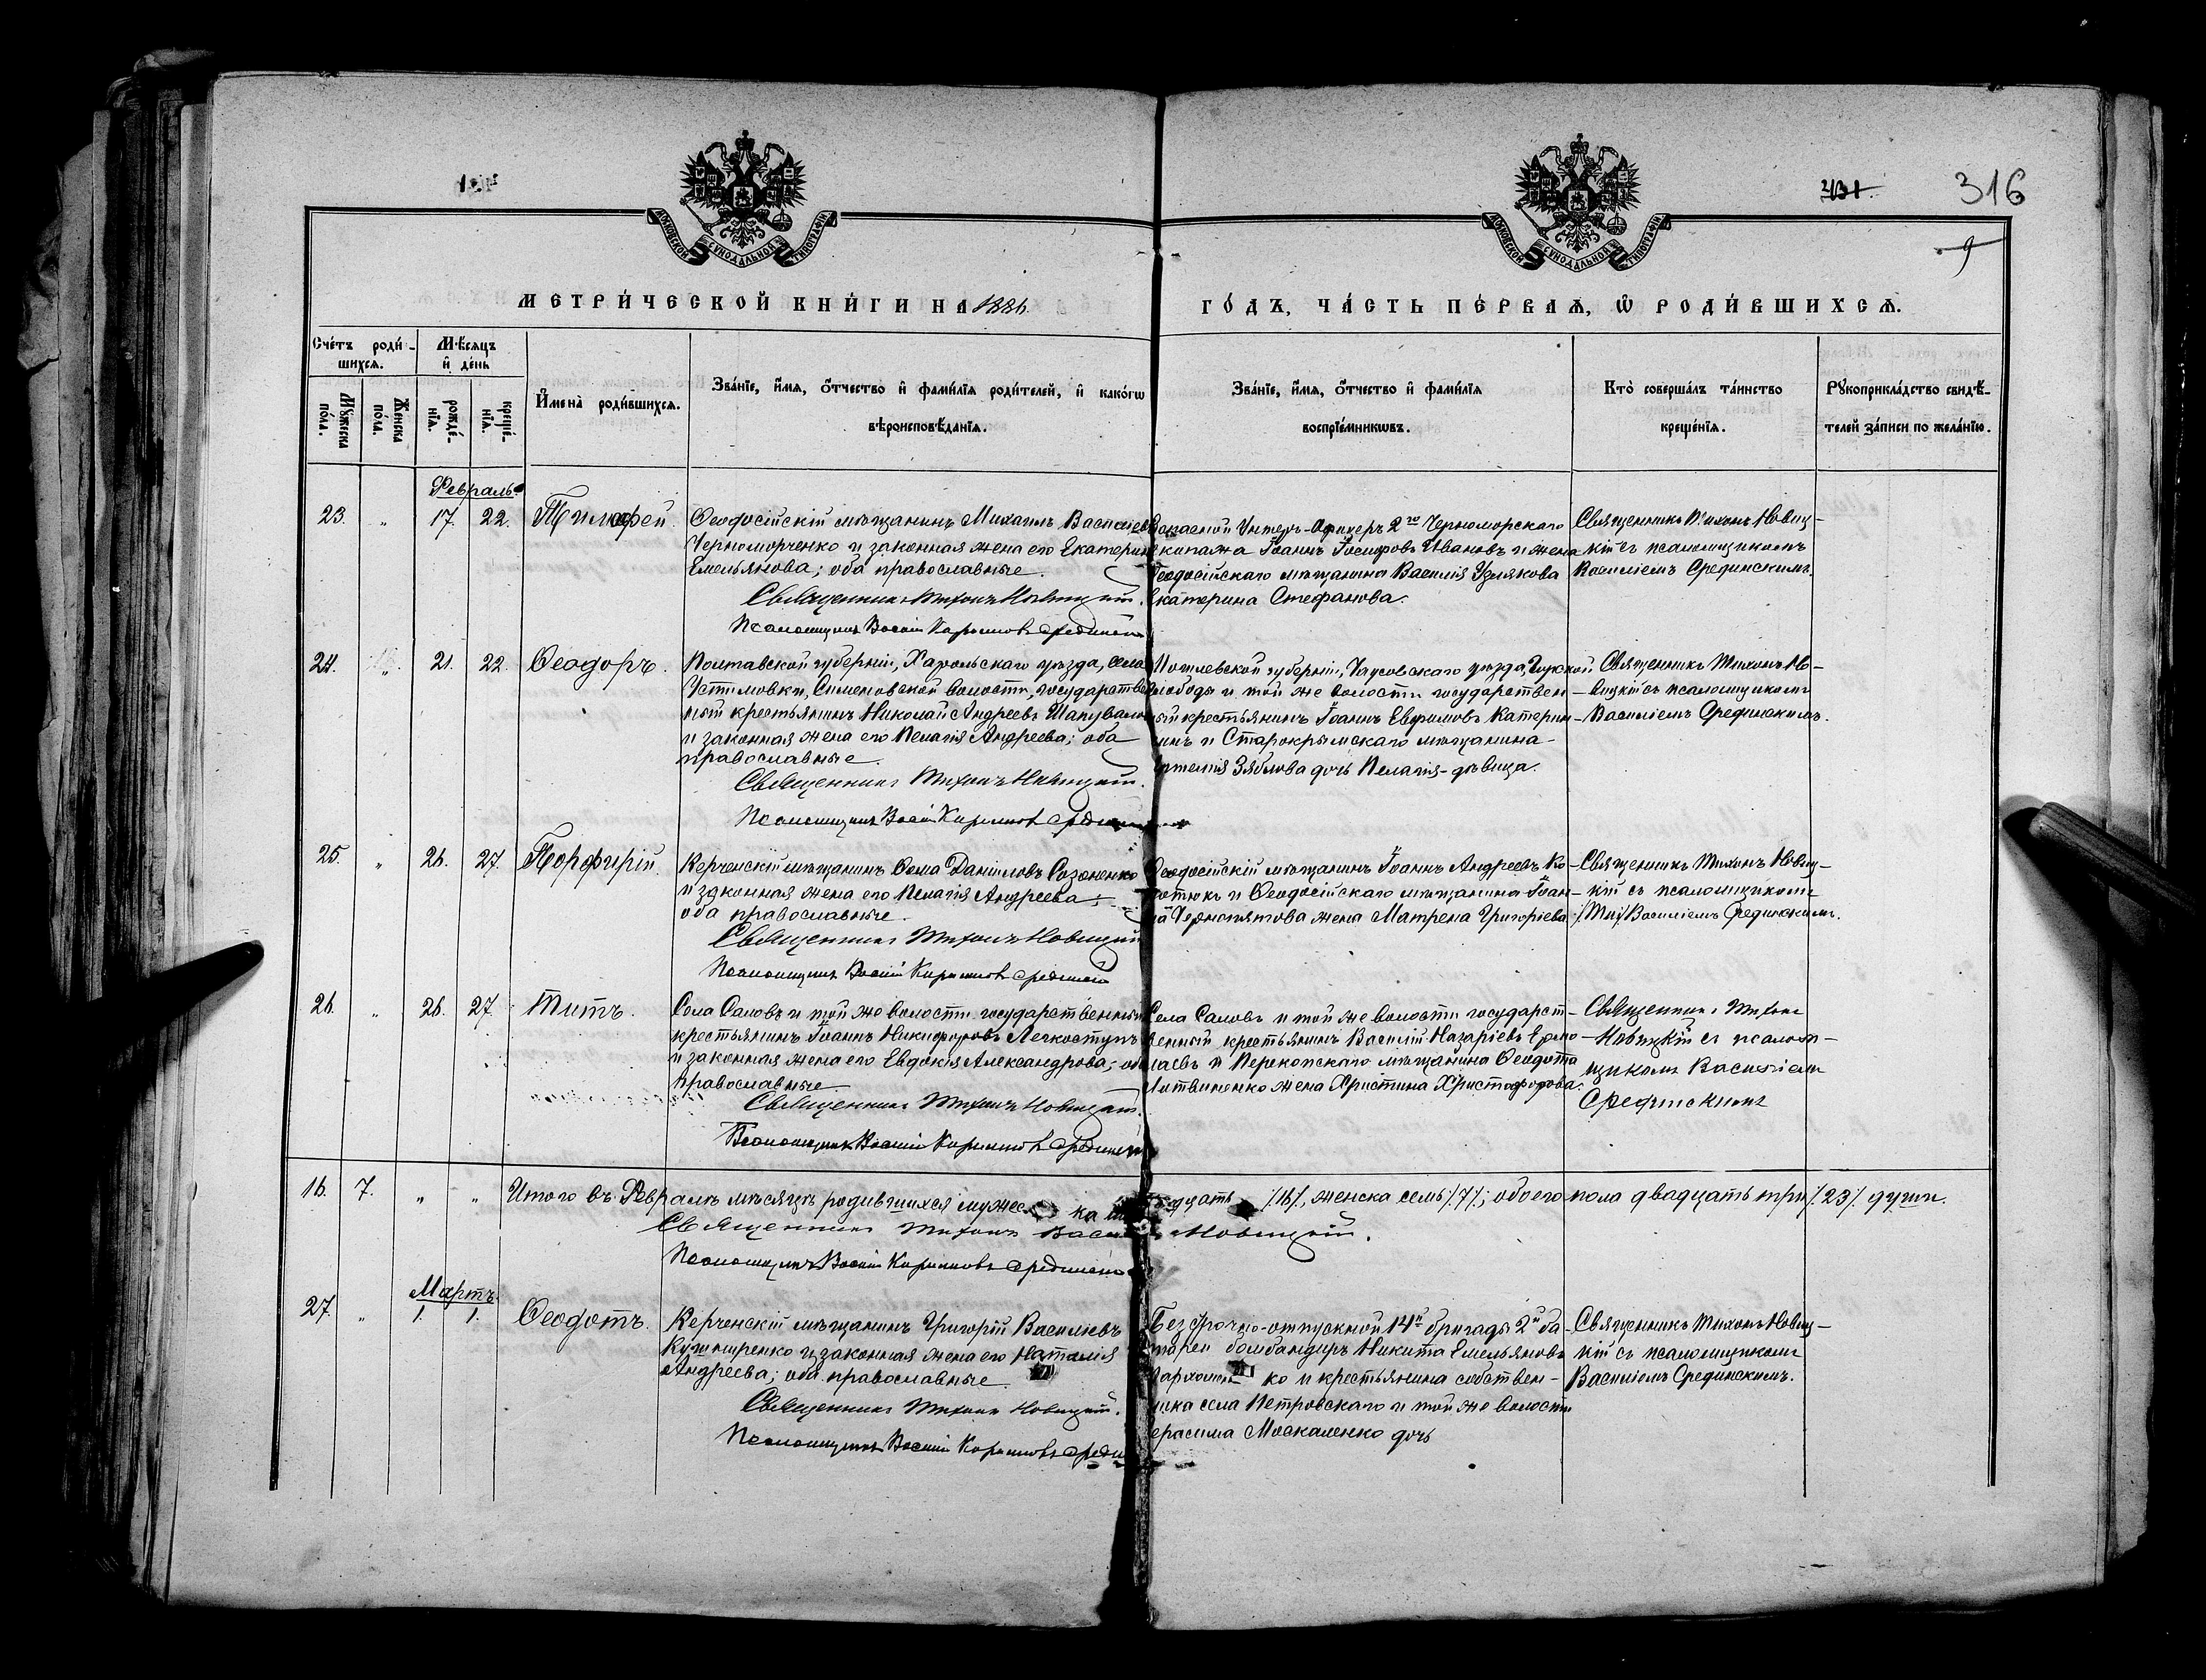 431.
316
9
МОСКОВСКОЙ СѴНОДАЛЬНОЙ ТИПОГРАФІИ
МОСКОВСКОЙ СѴНОДАЛЬНОЙ ТИПОГРАФІИ
МЕТРИ́ЧЕСКОЙ КНИ́ГИ НА 1886
ГО́ДЪ, ЧА́СТЬ ПЕ́РВАѦ, Ѡ҆ РОДИ́ВШИХСѦ.
Сче́тъ роди́-
шихсѧ.
Мꙋ́жеска по́ла.
Же́нска по́ла.
Мѣ́сѧцъ
и҆ де́нь
рожде́-
нїѧ.
креще́-
нїѧ.
И҆мена̀ роди́вшихсѧ.
Зва́нїе, и҆́мѧ, ѻ҆́тчество и҆ фами́лїѧ роди́телей, и҆ како́гѡ
вѣроисповѣ́данїѧ.
Зва́нїе, и҆́мѧ, ѻ҆́тчество и҆ фами́лїѧ
воспрїе́мникѡвъ.
Кто̀ соверша́лъ та́инство
креще́нїѧ.
Рꙋкоприкла́дство свидѣ́-
телей за́писи по жела́нїю.
Февраль
23. " 17. 22. Тимофей.
Ѳеодосійскій мѣщанинъ Михаилъ Васильевъ
Черноморченко и законная жена его Екатерина
Емельянова; оба православные.
Священникъ Тихонъ Новицкій.
Псаломщикъ Василій Коримовъ Срединскій
Запасной Унтеръ-Офицеръ 2го Черноморскаго
экипажа Іоаннъ Іосифовъ Ивановъ и жена
Ѳеодосійскаго мѣщанина Василія Узлякова
Екатерина Стефанова.
Священникъ Тихонъ Новиц-
кій съ псаломщикомъ
Василіемъ Срединскимъ.
24. " 21. 22. Ѳеодоръ.
Полтавской губерніи, Хорольскаго уѣзда, села
Устимовки, Семеновской волости, государствен
ный крестьянинъ Николай Андреевъ Шаповалов
и законная жена его Пелагія Андреева; оба
православные.
Священникъ Тихонъ Новицкій.
Псаломщикъ Василій Коримовъ Срединскій
Могилевской губерніи, Чаусовскаго уѣзда, Горской
слободы и той же волости государствен-
ный крестьянинъ Іоаннъ Евфимовъ Катерин-
инъ и Старокрымскаго мѣщанина
Артемія Зяблова дочь Пелагія-дѣвица.
Священникъ Тихонъ Но-
вицкій съ псаломщикомъ
Василіемъ Срединскимъ.
25. " 26. 27. Порфирій.
Керченскій мѣщанинъ Ѳома Даниловъ Созоненко
и законная жена его Пелагія Андреева;
оба православные.
Священникъ Тихонъ Новицкій
Псаломщикъ Василій Коримовъ Срединскій
Ѳеодосійскій мѣщанинъ Іоаннъ Андреевъ Ко-
ротюкъ и Ѳеодосійскаго мѣщанина Іоан-
на Чернопятова жена Матрена Григоріева
Священникъ Тихонъ Новиц-
кій съ псаломщикомъ
Василіемъ Срединскимъ.
26. " 26. 27. Титъ.
Села Саловъ и той же волости государственный
крестьянинъ Іоаннъ Никифоровъ Легкоступъ
и законная жена его Евдокія Александрова; оба
православные
Священникъ Тихонъ Новицкій.
Псаломщикъ Василій Коримовъ Срединскій
Села Саловъ и той же волости государст-
венный крестьянинъ Василій Назаріевъ Ермо-
лаевъ и Перекопскаго мѣщанина Ѳеодота
Литвиненко жена Христина Христофорова.
Священникъ Тихонъ
Новицкій съ псалом-
щикомъ Василіемъ
Срединскимъ
16. 7. " " Итого въ Февралѣ мѣсяцѣ родившихся мужеска дцать /16/, женска семь /7/; обоего пола двадцать три /23/ души.
Священникъ Тихонъ Васи Новицкій.
Псаломщикъ Василій Коримовъ Срединскій
Мартъ
27. " 1. 1. Ѳеодотъ.
Керченскій мѣщанинъ Григорій Васильевъ
Кушниренко и законная жена его Наталія
Андреева; оба православные.
Священникъ Тихонъ Новицкій.
Псаломщикъ Василій Коримовъ Среди
Безсрочно-отпускной 14й бригады 2й ба-
тареи бомбандиръ Никита Емельяновъ
Пархомен ко и крестьянина собствен-
ника села Петровскаго и той же волости
Герасима Москаленко дочь
Священникъ Тихонъ Новиц-
кій съ псаломщикомъ
Василіемъ Срединскимъ.